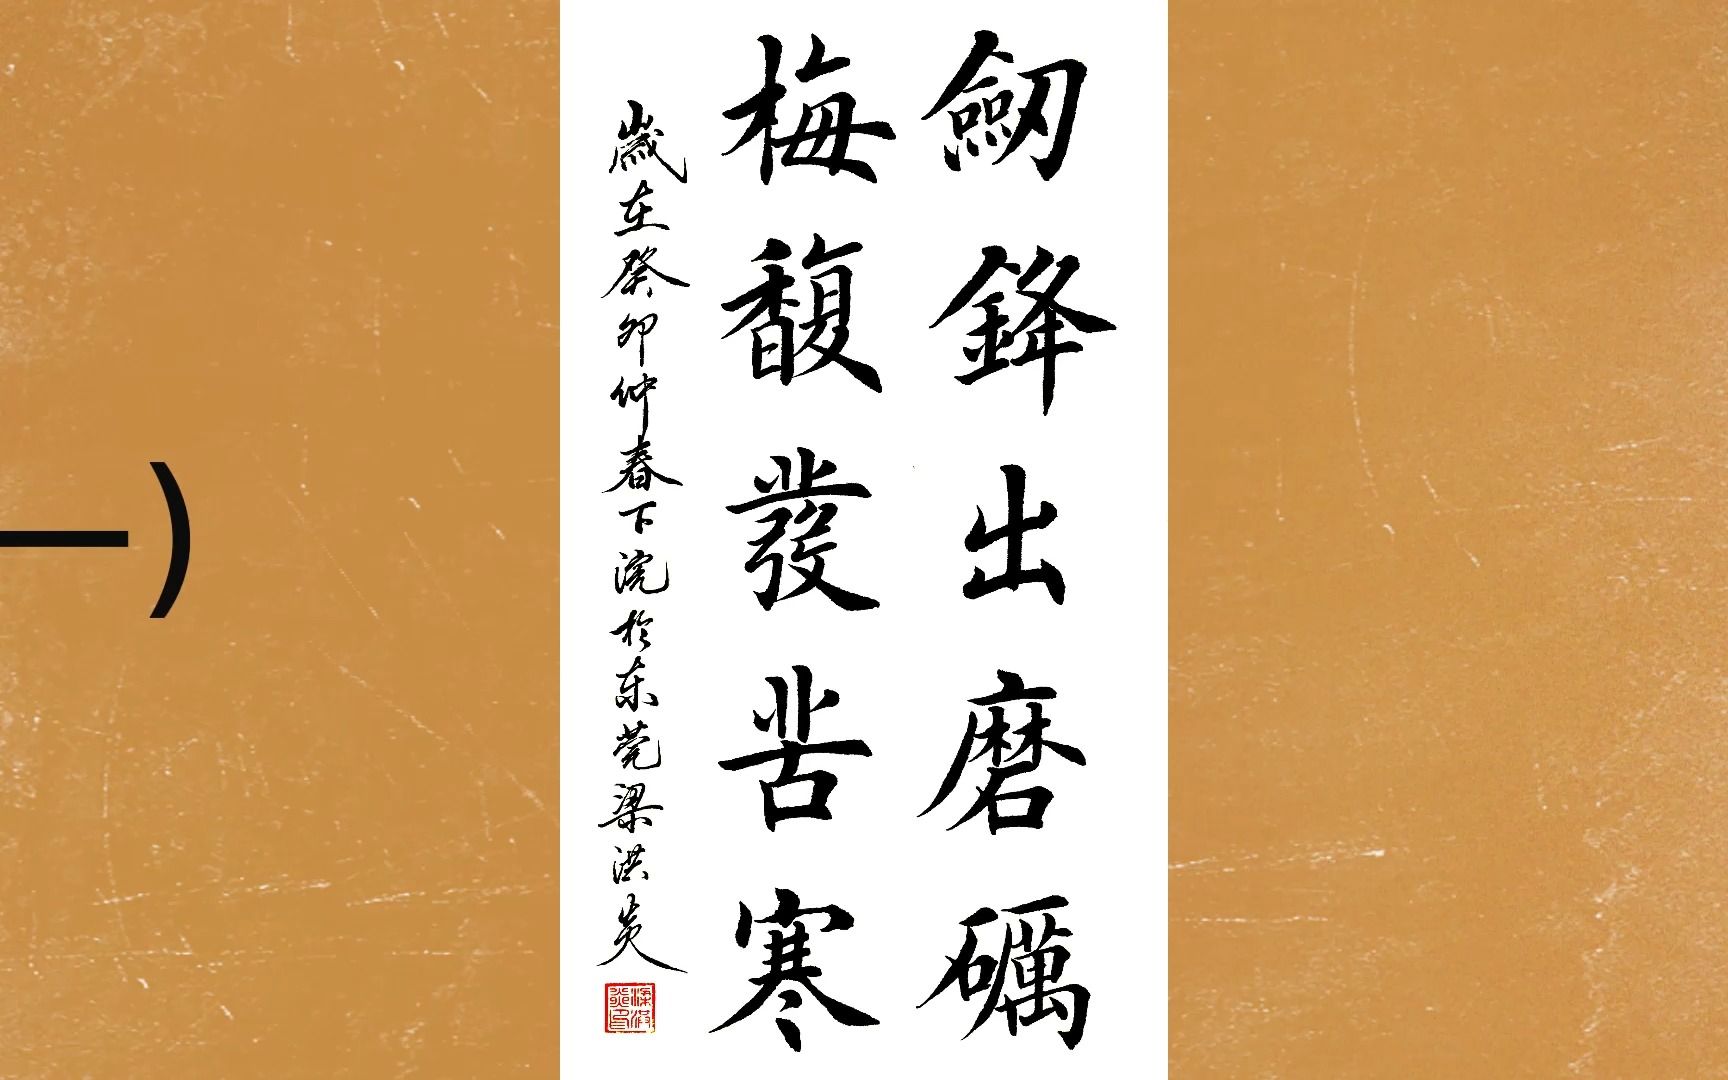 劒鋒出磨礪
梅馥發苦寒
歲在癸卯仲春下浣於东莞梁洪炎
一)
梁洪炎印